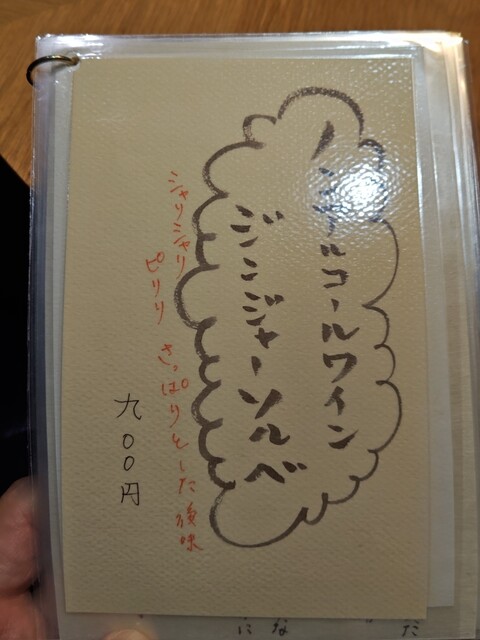 ノンアルコールワイン
ジンジャーソルベ
シャリシャリ
ピリリ
さっぱりとした後味
九〇〇円